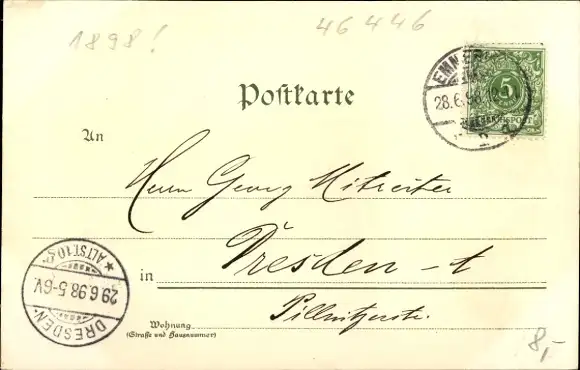 1898!
46446
EMM
28.6.98.12
5
REICHSPOST
Postkarte
An
Herrn Georg
Dresden - A
in
Pillnitzerstr.
Wohnung
(Straße und Hausnummer)
DRESDEN-
29.6.98.5-6V.
* ALTST.10.c.
8,-